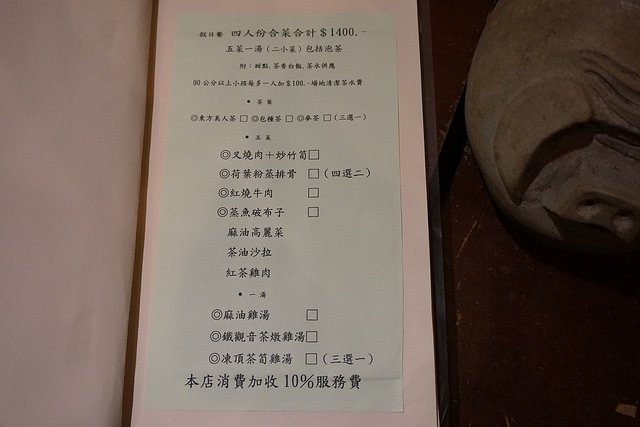 假日餐 四人份合菜合計＄1400.-
五菜一湯（二小菜）包括泡茶
附：甜點.茶香白飯.茶水供應
90公分以上小孩每多一人加＄100.-場地清潔茶水費
• 茶 葉
◎東方美人茶 □ ◎包種茶 □ ◎麥茶 □（三選一）
• 五 菜
◎叉燒肉＋炒竹筍□
◎荷葉粉蒸排骨 □（四選二）
◎紅燒牛肉 □
◎蒸魚破布子 □
麻油高麗菜
茶油沙拉
紅茶雞肉
• 一 湯
◎麻油雞湯 □
◎鐵觀音茶燉雞湯□
◎凍頂茶筍雞湯 □（三選一）
本店消費加收10%服務費